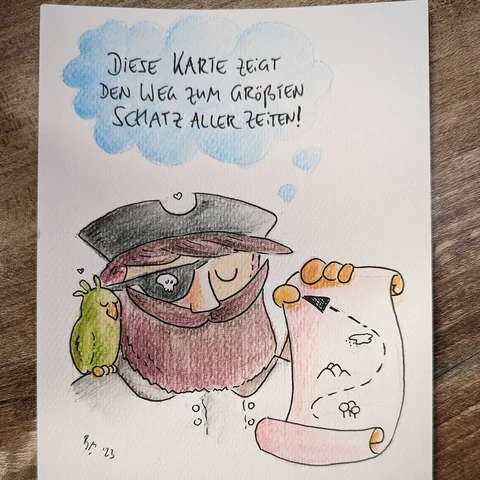 DIESE KARTE ZEIGT
DEN WEG ZUM GRÖßTEN
SCHATZ ALLER ZEITEN!